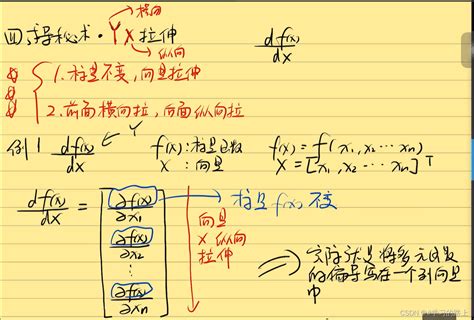 横向
四、求导秘术·YX拉伸
纵向
df(x)/dx
1. 标量不变,向量拉伸
2. 前面横向拉,后面纵向拉
Y
例1 df(x)/dx f(x):标量函数 f(x)=f(x₁,x₂…xₙ)
x:向量 x=[x₁,x₂…xₙ]ᵀ
df(x)/dx = [∂f(x)/∂x₁
∂f(x)/∂x₂
⋮
∂f(x)/∂xₙ]
标量f(x)不变
向量
X纵向
拉伸
实际就是将多元函数
的偏导写在一个列向量
中